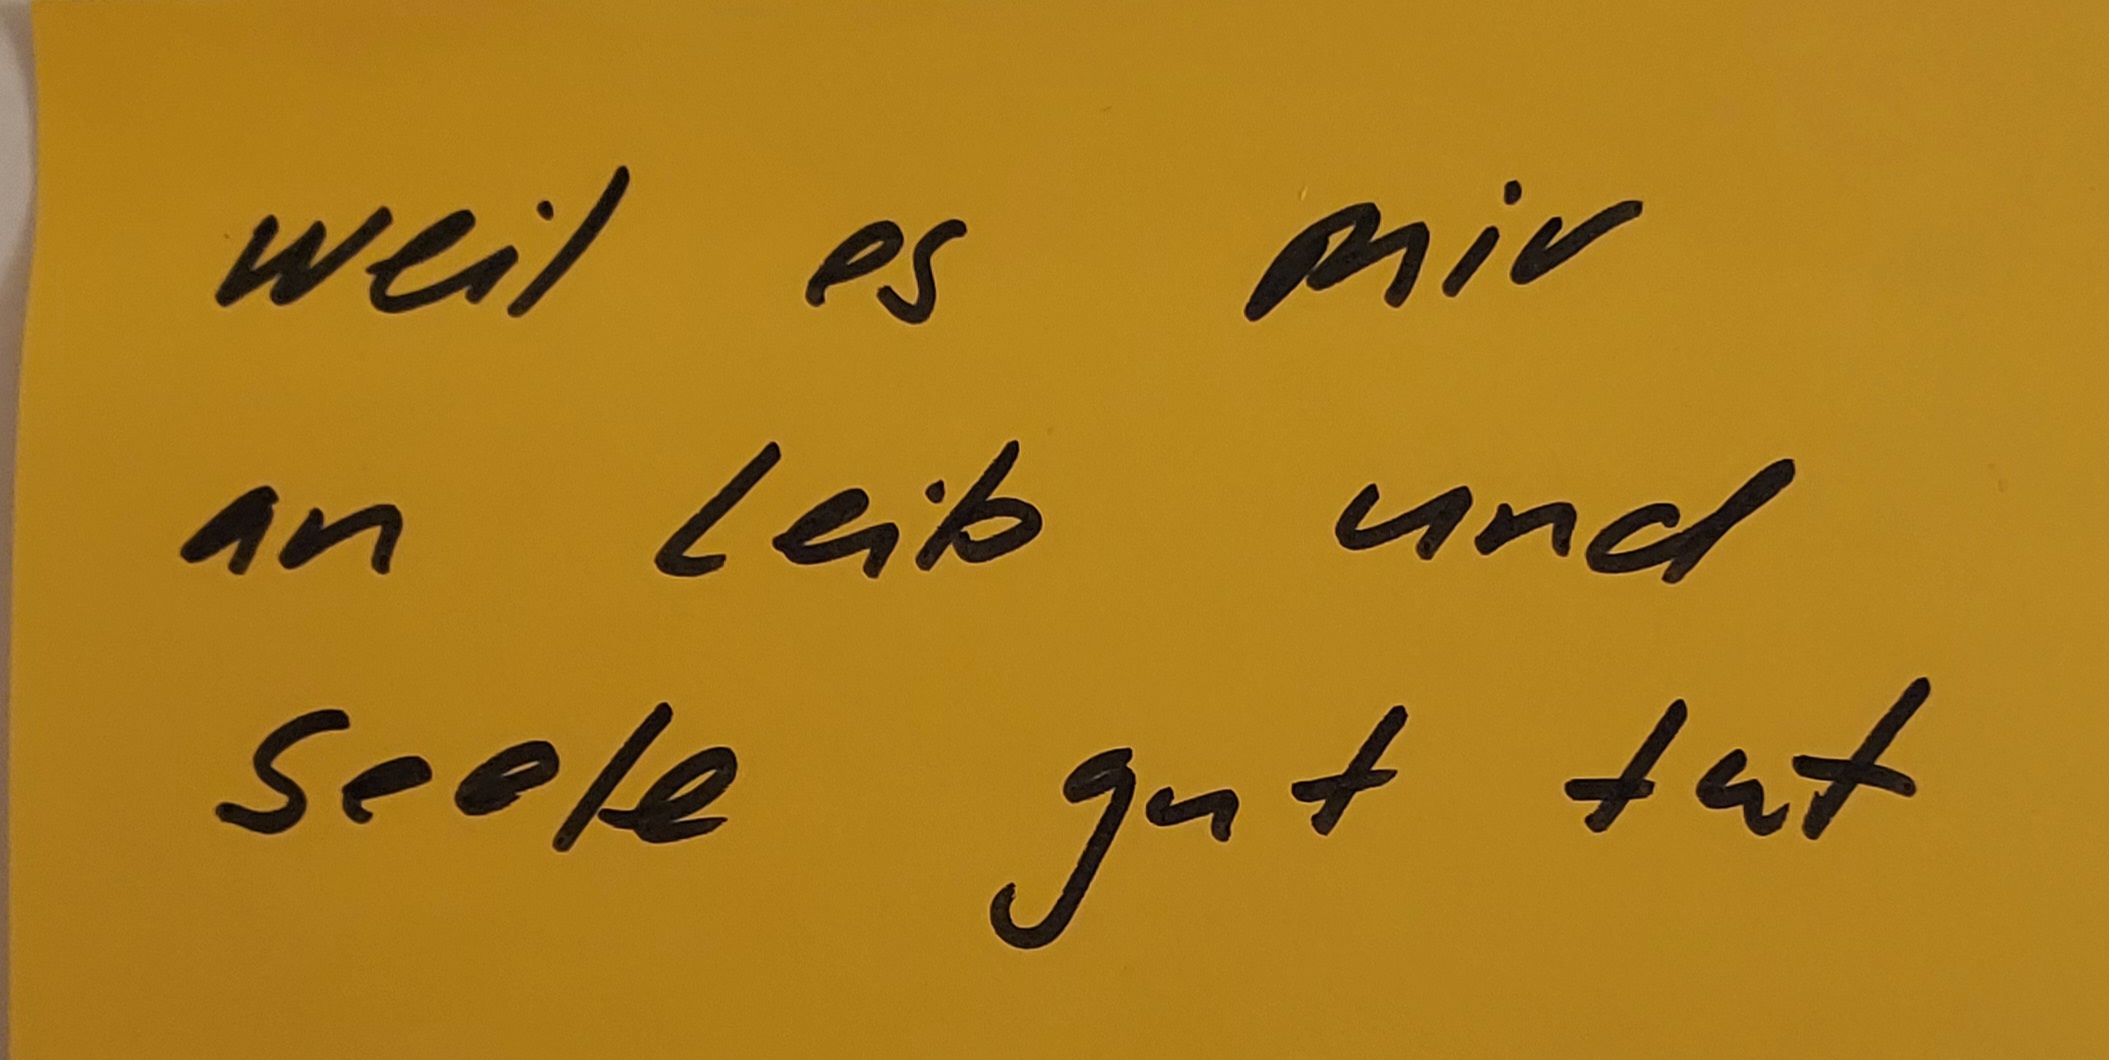 weil es mir
an Leib und
Seele gut tut